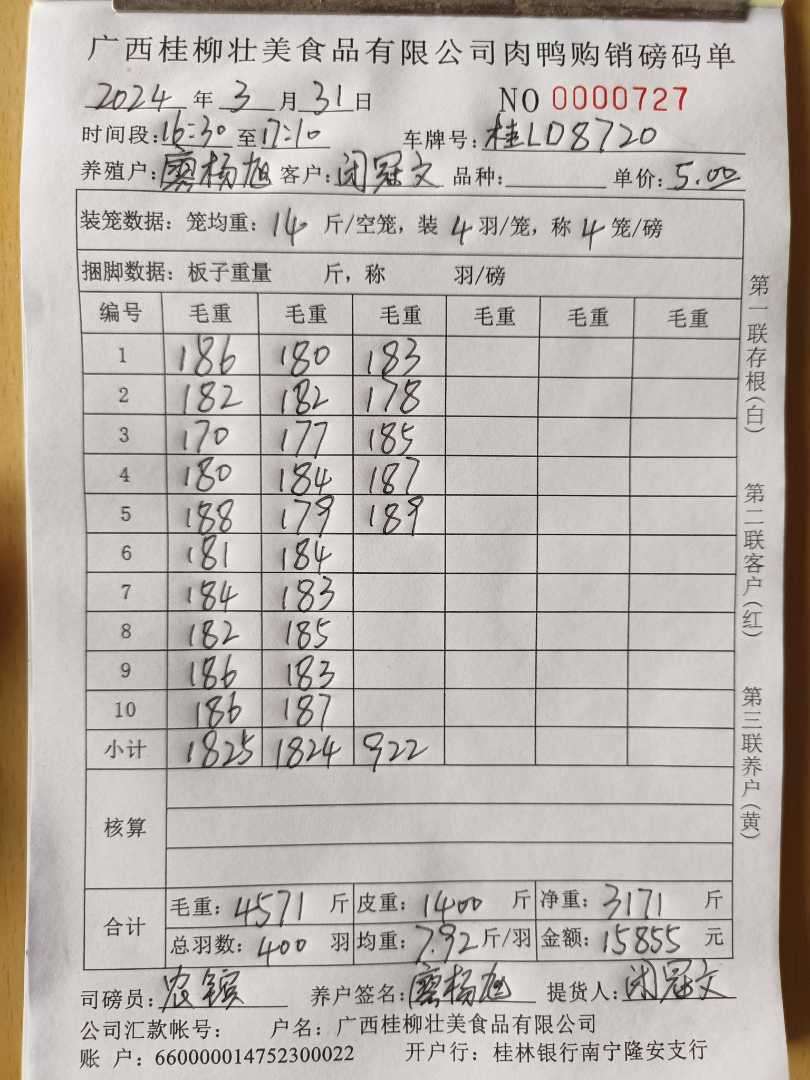 广西桂柳壮美食品有限公司肉鸭购销磅码单
2024 年 3 月 31 日 NO 0000727
时间段:16:30 至 17:10 车牌号:桂LD8720
养殖户:廖杨旭 客户:闭冠文 品种: 单价:5.00
装笼数据:笼均重:14 斤/空笼,装 4 羽/笼,称 4 笼/磅
捆脚数据:板子重量 斤,称 羽/磅
编号 毛重 毛重 毛重 毛重 毛重 毛重
1 186 180 183
2 182 182 178
3 170 177 185
4 180 184 187
5 188 179 189
6 181 184
7 184 183
8 182 185
9 186 183
10 186 187
小计 1825 1824 922
核算
合计
毛重:4571 斤 皮重:1400 斤 净重:3171 斤
总羽数:400 羽 均重:7.92 斤/羽 金额:15855 元
司磅员:农镔 养户签名:廖杨旭 提货人:闭冠文
公司汇款帐号: 户名:广西桂柳壮美食品有限公司
账 户:660000014752300022 开户行:桂林银行南宁隆安支行
第一联存根(白)
第二联客户(红)
第三联养户(黄)